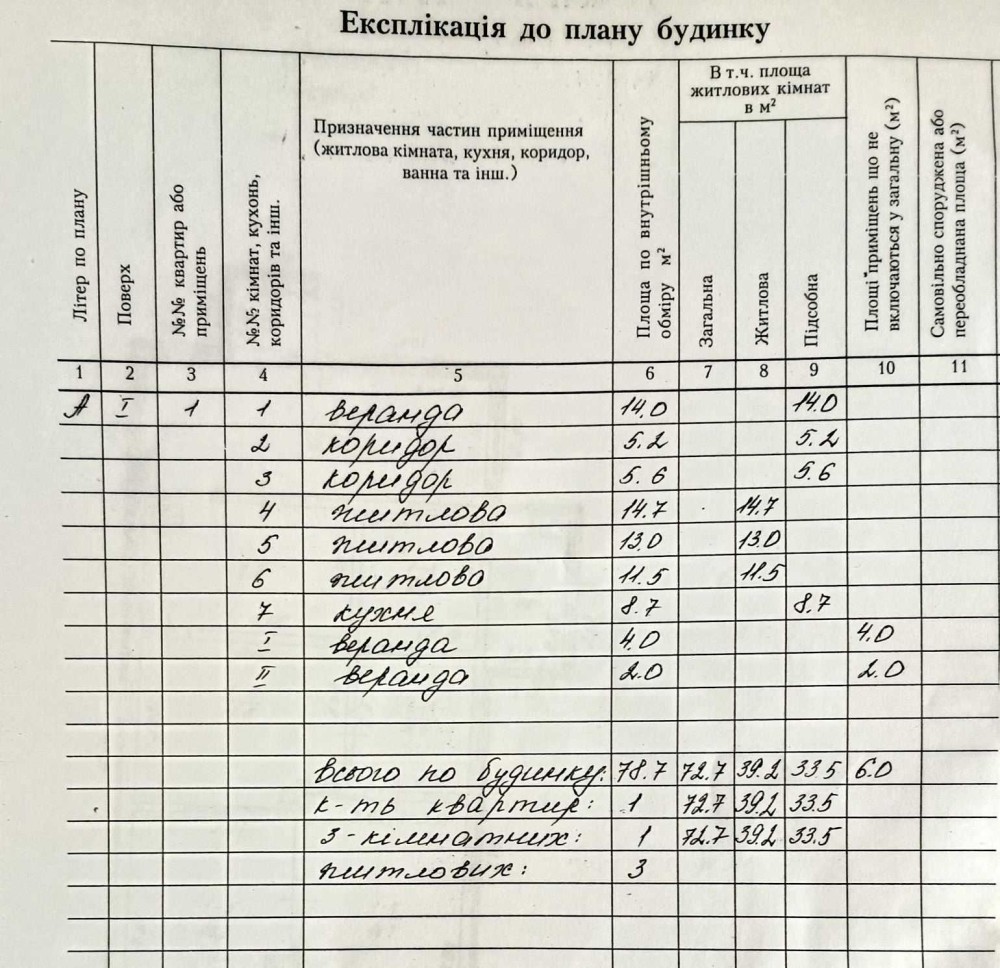 Експлікація до плану будинку
Літер по плану
Поверх
№№ квартир або приміщень
№№ кімнат, кухонь, коридорів та інш.
Призначення частин приміщення
(житлова кімната, кухня, коридор,
ванна та інш.)
Площа по внутрішньому обміру м²
В т.ч. площа
житлових кімнат
в м²
Загальна
Житлова
Підсобна
Площі приміщень що не включаються у загальну (м²)
Самовільно споруджена або переобладнана площа (м²)
1 2 3 4 5 6 7 8 9 10 11
А I 1 1 веранда 14.0 14.0
2 коридор 5.2 5.2
3 коридор 5.6 5.6
4 житлова 14.7 14.7
5 житлова 13.0 13.0
6 житлова 11.5 11.5
7 кухня 8.7 8.7
I веранда 4.0 4.0
II веранда 2.0 2.0
всього по будинку: 78.7 72.7 39.2 33.5 6.0
к-ть квартир: 1 72.7 39.2 33.5
3-кімнатних: 1 72.7 39.2 33.5
житлових: 3